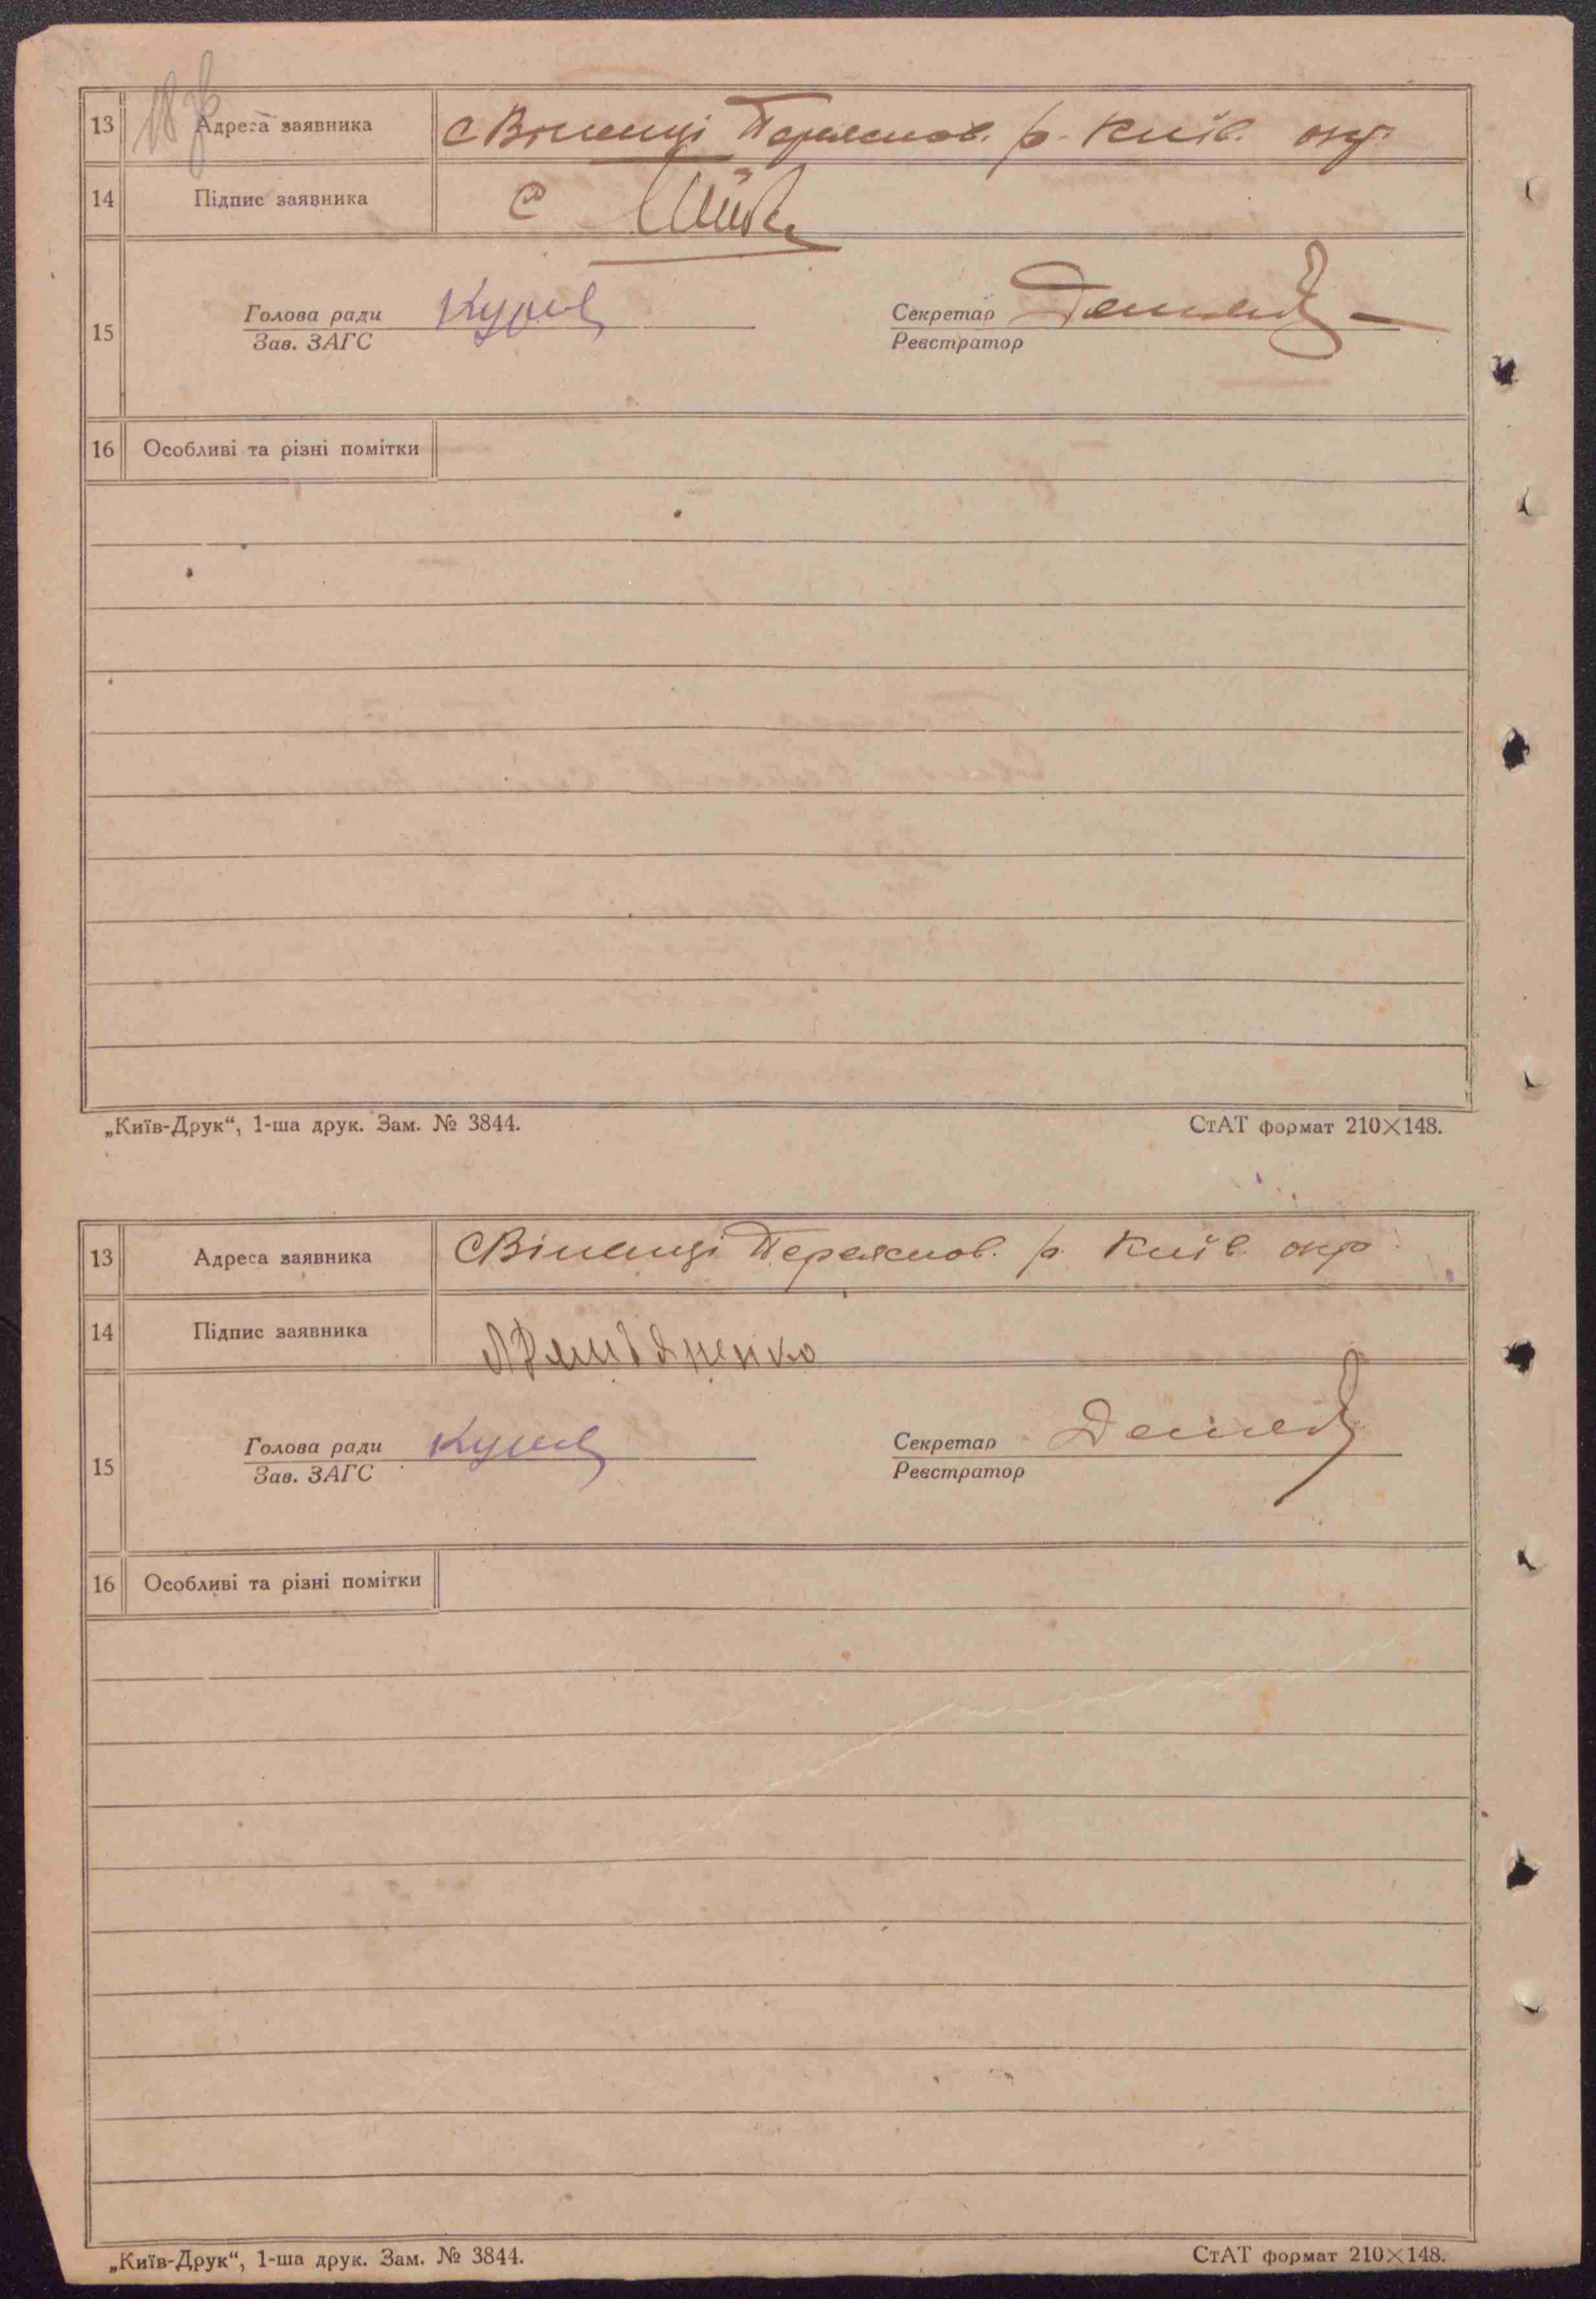 18 зв
13 Адреса заявника с Віненці Переяслов. р. Київ. окр
14 Підпис заявника С
15 Голова ради Секретар
Зав. ЗАГС Реєстратор
16 Особливі та різні помітки
„Київ-Друк“, 1-ша друк. Зам. № 3844. СтАТ формат 210×148.
13 Адреса заявника с Віненці Переяслов. р. Київ. окр
14 Підпис заявника
15 Голова ради Секретар
Зав. ЗАГС Реєстратор
16 Особливі та різні помітки
„Київ-Друк“, 1-ша друк. Зам. № 3844. СтАТ формат 210×148.